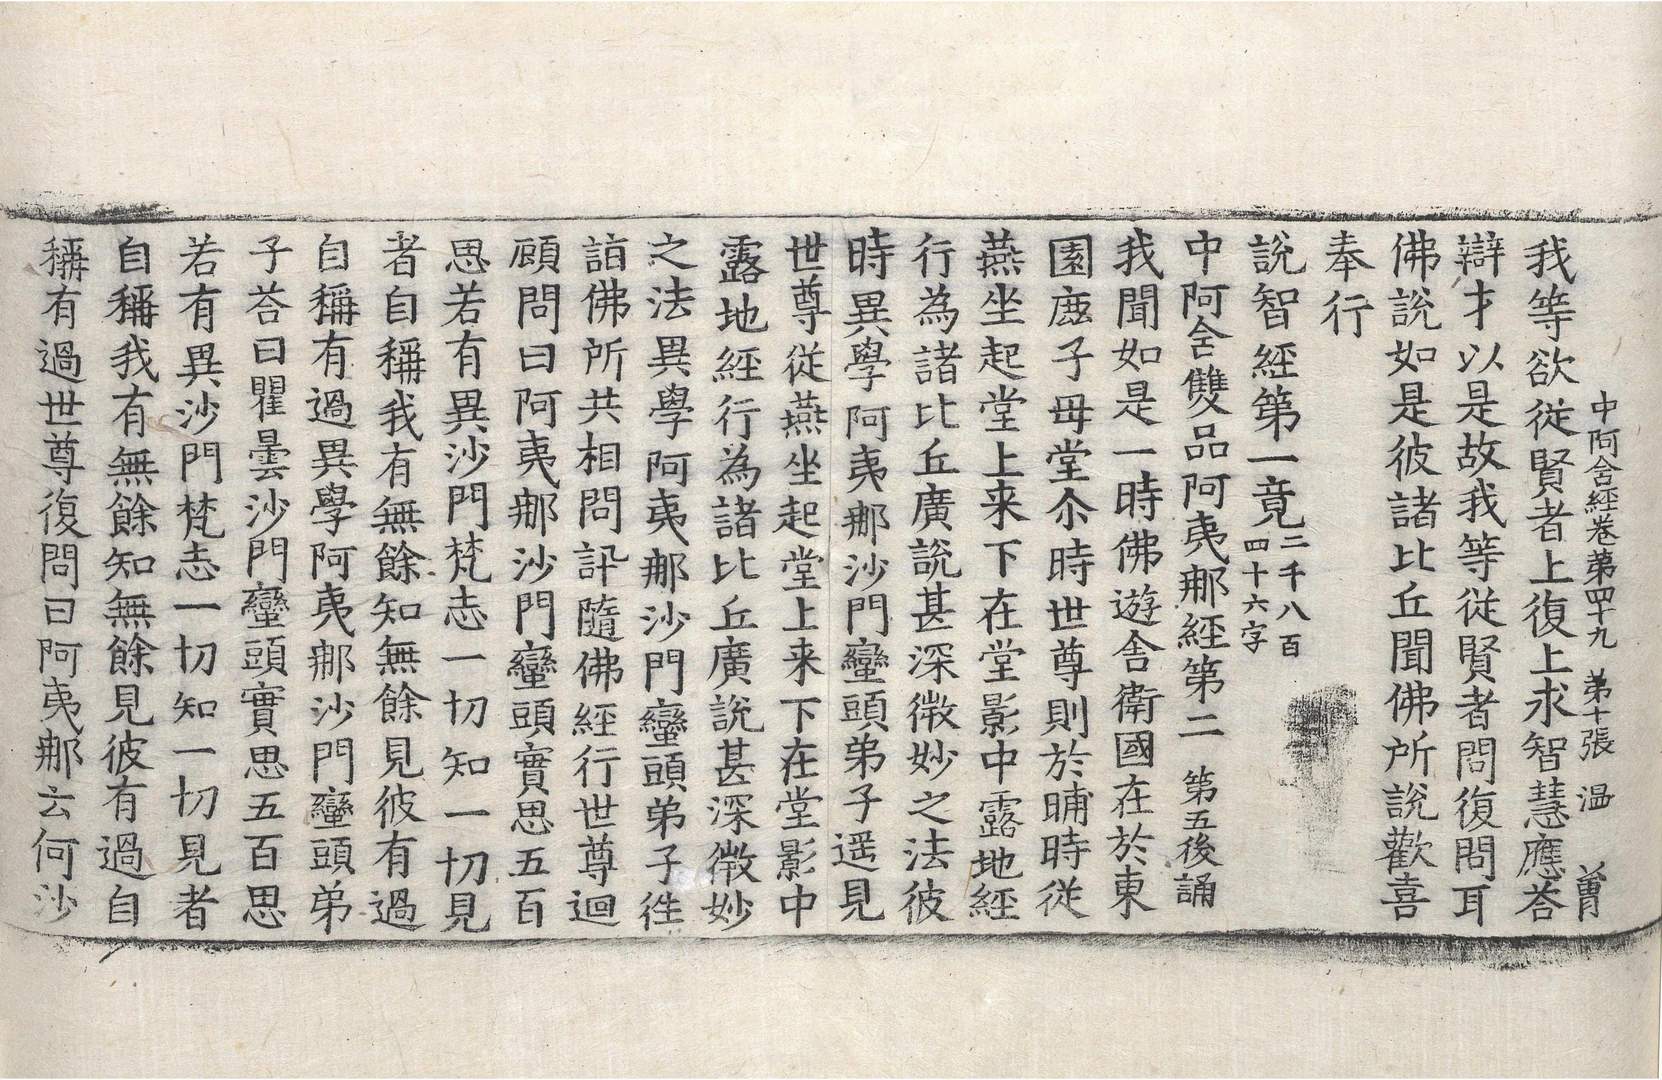 中阿含經卷第四十九　第十張　温
曾
我等欲從賢者上復上求智慧應荅
辯才以是故我等從賢者問復問耳
佛說如是彼諸比丘聞佛所說歡喜
奉行
說智經第一竟二千八百
四十六字
中阿含雙品阿夷那經第二　第五後誦
我聞如是一時佛遊舍衛國在於東
園鹿子母堂尒時世尊則於晡時從
燕坐起堂上来下在堂影中露地經
行為諸比丘廣說甚深微妙之法彼
時異學阿夷那沙門蠻頭弟子遥見
世尊從燕坐起堂上来下在堂影中
露地經行為諸比丘廣說甚深微妙
之法異學阿夷那沙門蠻頭弟子徃
詣佛所共相問訊隨佛經行世尊迴
顧問曰阿夷那沙門蠻頭實思五百
思若有異沙門梵志一切知一切見
者自稱我有無餘知無餘見彼有過
自稱有過異學阿夷那沙門蠻頭弟
子荅曰瞿曇沙門蠻頭實思五百思
若有異沙門梵志一切知一切見者
自稱我有無餘知無餘見彼有過自
稱有過世尊復問曰阿夷那云何沙